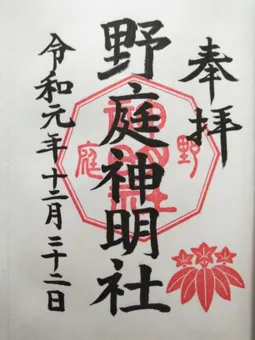 奉拝
野庭神明社
令和元年十二月二十二日
野
庭